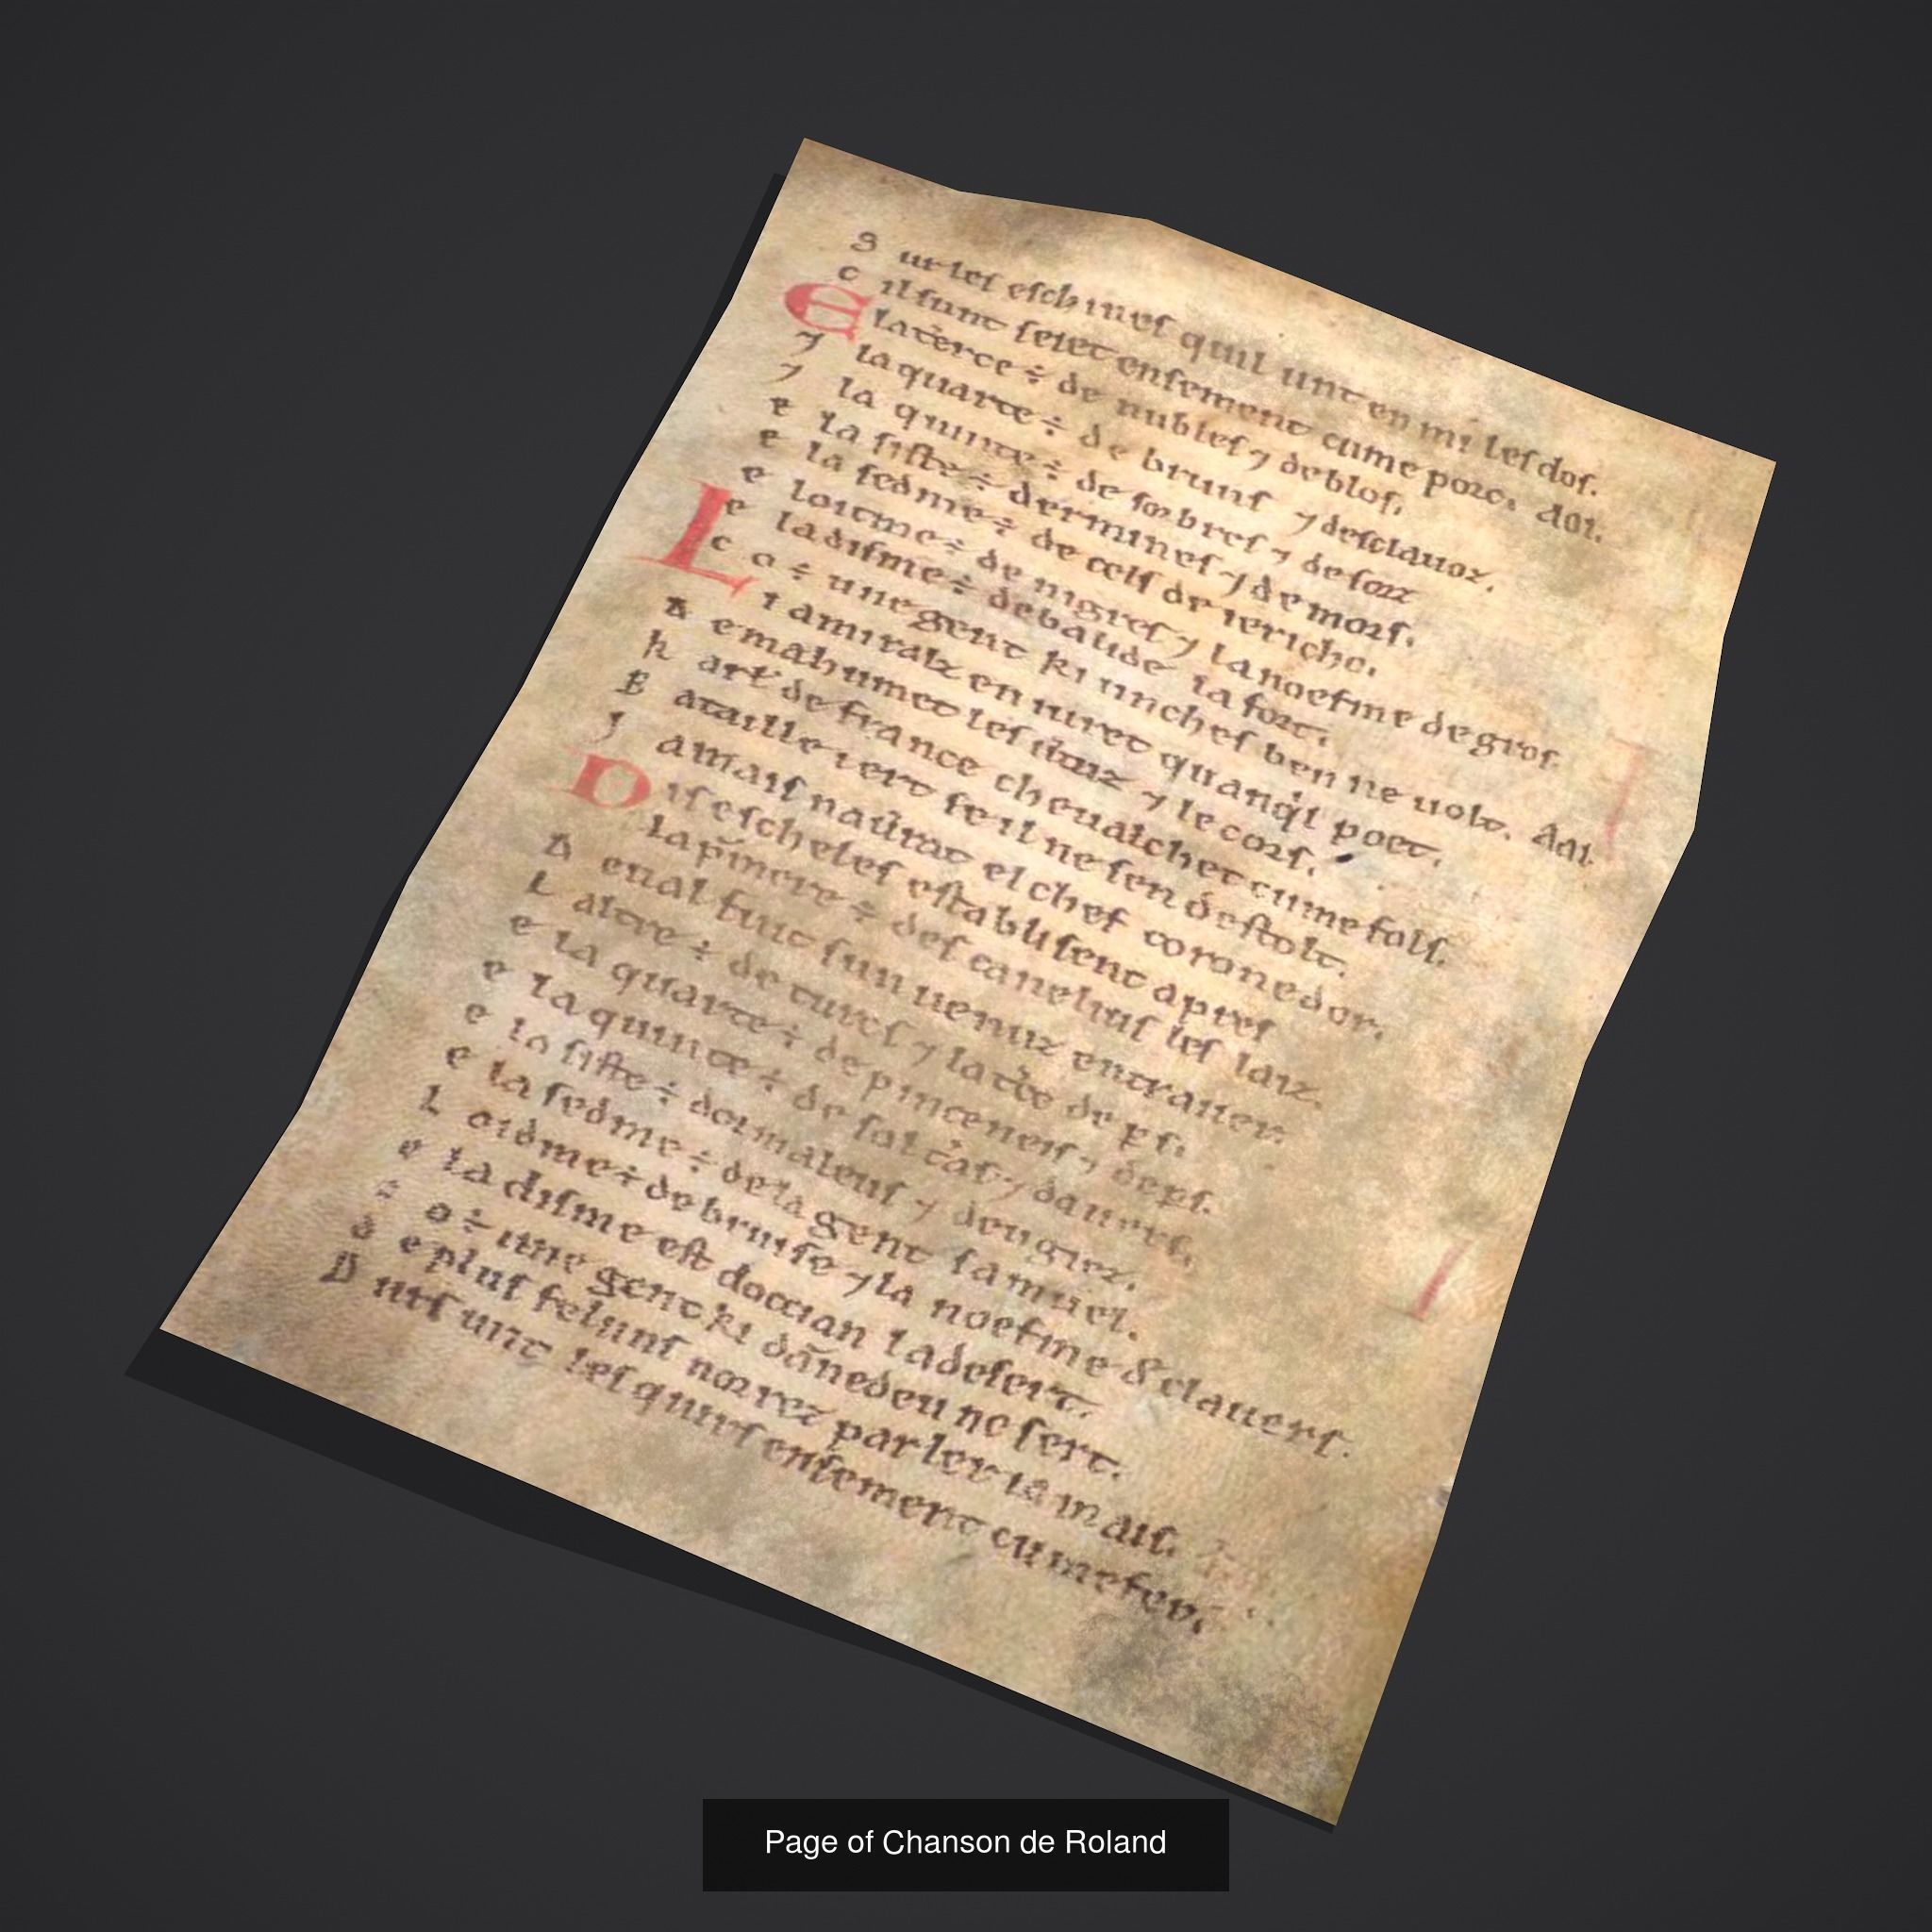 S ur les eschines quil unt en mi les dos.
C il sunt seiet ensement cume porc. Aoi.
E la terce ÷ de nubles ⁊ de blos.
⁊ la quarte ÷ de bruns ⁊ desclauoz.
⁊ la quinte ÷ de sorbres ⁊ de sorz
e la siste ÷ dermines ⁊ de mors.
e la sedme ÷ de cels de iericho.
e loitme ÷ de nigres ⁊ la noefme de gros.
e la disme ÷ de balide la fort.
c o ÷ une gent ki unches ben ne uolt. Aoi.
L i amiralz en iuret quanq'l poet.
D e mahumet les ũtuz ⁊ le cors.
K arł de france cheualchet cume fols.
B ataille iert se il ne sen destolt.
J amais naũrat el chef corone dor.
D is escheles establisent apres
la p̃mere ÷ des canelius les laiz.
D e ual fuit sun uenuz en trauers.
L altre ÷ de turcs ⁊ la t̉ce de ꝑs.
e la quarte ÷ de pinceneis ⁊ de ꝑs.
e la quinte ÷ de solt̉as ⁊ dauers.
e la siste ÷ dormaleus ⁊ deugiez.
e la sedme ÷ de la gent samuel.
L oidme ÷ de bruise ⁊ la noefme de clauers.
e la disme est doccian la desert.
c o ÷ une gent ki dãnedeu ne sert.
d e plus feluns norrez parler ia mais.
D urs unt les quirs ensement cume fer.
Page of Chanson de Roland